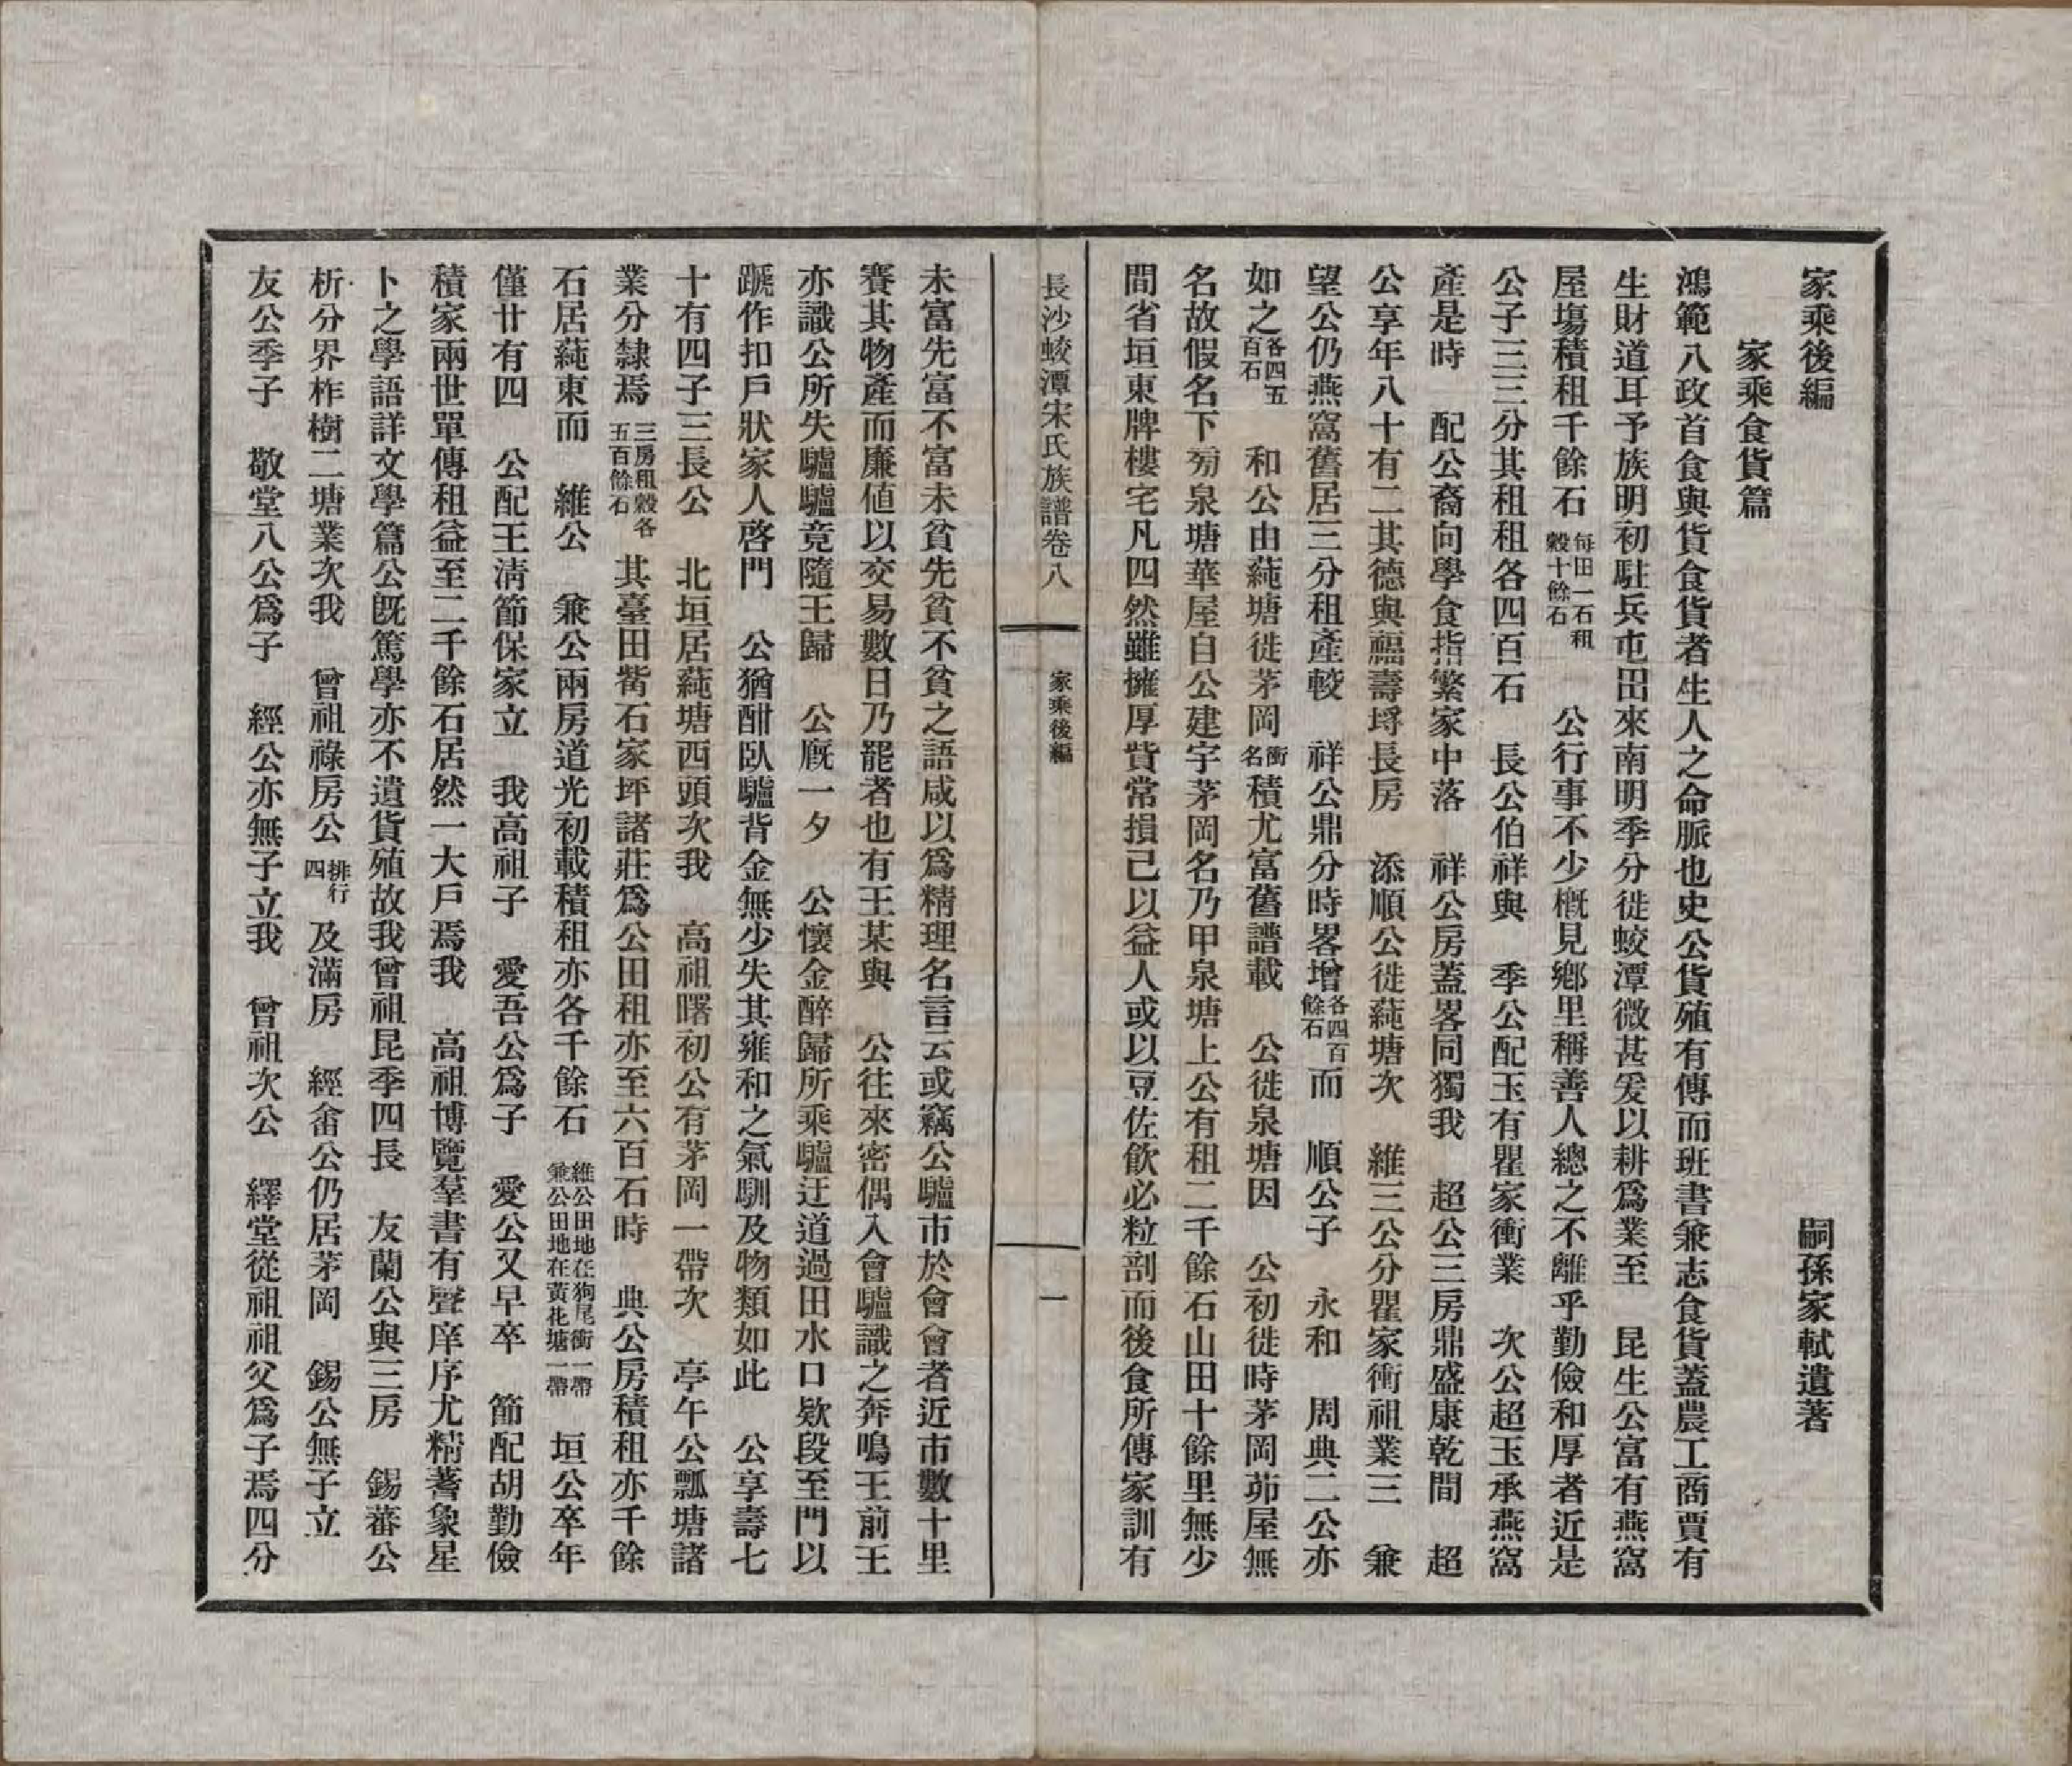 家乘後編　嗣孫家軾遺著
家乘食貨篇
鴻範八政首食與貨食貨者生人之命脈也史公貨殖有傳而班書兼志食貨蓋農工商賈有
生財道耳予族明初駐兵屯田來南明季分徙蛟潭微甚爰以耕爲業至　昆生公富有燕窩
屋塲積租千餘石每田一石租穀十餘石　公行事不少槪見鄕里稱善人總之不離乎勤儉和厚者近是
公子三三分其租租各四百石　長公伯祥與　季公配玉有瞿家衝業　次公超玉承燕窩
產是時　配公裔向學食指繁家中落　祥公房蓋畧同獨我　超公三房鼎盛康乾間　超
公享年八十有二其德與福壽埒長房　添順公徙蒓塘次　維三公分瞿家衝祖業三　兼
望公仍燕窩舊居三分租產較　祥公鼎分時畧增各四百餘石而　順公子　永和　周典二公亦
如之各四五百石　和公由蒓塘徙茅岡衝名積尤富舊譜載　公徙泉塘因　公初徙時茅岡茆屋無
名故假名下菊泉塘華屋自公建宇茅岡名乃甲泉塘上公有租二千餘石山田十餘里無少
間省垣東牌樓宅凡四然雖擁厚貲常損己以益人或以豆佐飮必粒剖而後食所傳家訓有
長沙蛟潭宋氏族譜卷八　家乘後編　一
未富先富不富未貧先貧不貧之語咸以爲精理名言云或竊公驢市於會會者近市數十里
賽其物產而廉値以交易數日乃罷者也有王某與　公往來密偶入會驢識之奔鳴王前王
亦識公所失驢驢竟隨王歸　公廐一夕　公懷金醉歸所乘驢迂道過田水口欵段至門以
蹏作扣戶狀家人啓門　公猶酣臥驢背金無少失其雍和之氣馴及物類如此　公享壽七
十有四子三長公　北垣居蒓塘西頭次我　高祖曙初公有茅岡一帶次　亭午公瓢塘諸
業分隸焉三房租穀各五百餘石　其臺田觜石家坪諸莊爲公田租亦至六百石時　典公房積租亦千餘
石居蒓東而　維公　兼公兩房道光初載積租亦各千餘石維公田地在狗尾衝一帶兼公田地在黃花塘一帶　垣公卒年
僅廿有四　公配王淸節保家立　我高祖子　愛吾公爲子　愛公又早卒　節配胡勤儉
積家兩世單傳租益至二千餘石居然一大戶焉我　高祖博覽羣書有聲庠序尤精蓍象星
卜之學語詳文學篇公旣篤學亦不遺貨殖故我曾祖昆季四長　友蘭公與三房　錫蕃公
析分界柞樹二塘業次我　曾祖祿房公排行四　及滿房　經畬公仍居茅岡　錫公無子立
友公季子　敬堂八公爲子　經公亦無子立我　曾祖次公　繹堂從祖祖父爲子焉四分